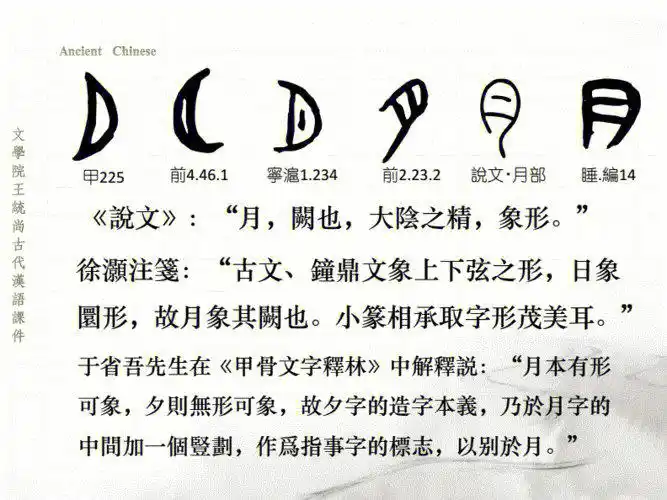 Ancient Chinese
文學院王統尚古代漢語課件
甲225
前4.46.1
寧滬1.234
前2.23.2
說文·月部
睡.編14
《說文》：“月，闕也，大陰之精，象形。”
徐灝注箋：“古文、鐘鼎文象上下弦之形，日象
圜形，故月象其闕也。小篆相承取字形茂美耳。”
于省吾先生在《甲骨文字釋林》中解釋説：“月本有形
可象，夕則無形可象，故夕字的造字本義，乃於月字的
中間加一個豎劃，作爲指事字的標志，以别於月。”